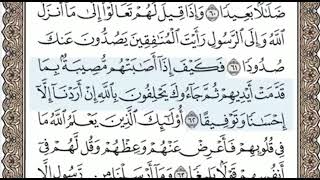 ضَلَٰلَۢا بَعِيدٗا ٦٠ وَإِذَا قِيلَ لَهُمۡ تَعَالَوۡاْ إِلَىٰ مَآ أَنزَلَ
ٱللَّهُ وَإِلَى ٱلرَّسُولِ رَأَيۡتَ ٱلۡمُنَٰفِقِينَ يَصُدُّونَ عَنكَ
صُدُودٗا ٦١ فَكَيۡفَ إِذَآ أَصَٰبَتۡهُم مُّصِيبَةُۢ بِمَا
قَدَّمَتۡ أَيۡدِيهِمۡ ثُمَّ جَآءُوكَ يَحۡلِفُونَ بِٱللَّهِ إِنۡ أَرَدۡنَآ إِلَّآ
إِحۡسَٰنٗا وَتَوۡفِيقًا ٦٢ أُوْلَٰٓئِكَ ٱلَّذِينَ يَعۡلَمُ ٱللَّهُ مَا
فِي قُلُوبِهِمۡ فَأَعۡرِضۡ عَنۡهُمۡ وَعِظۡهُمۡ وَقُل لَّهُمۡ فِيٓ
أَنفُسِهِمۡ قَوۡلَۢا بَلِيغٗا ٦٣ وَمَآ أَرۡسَلۡنَا مِن رَّسُولٍ إِلَّا